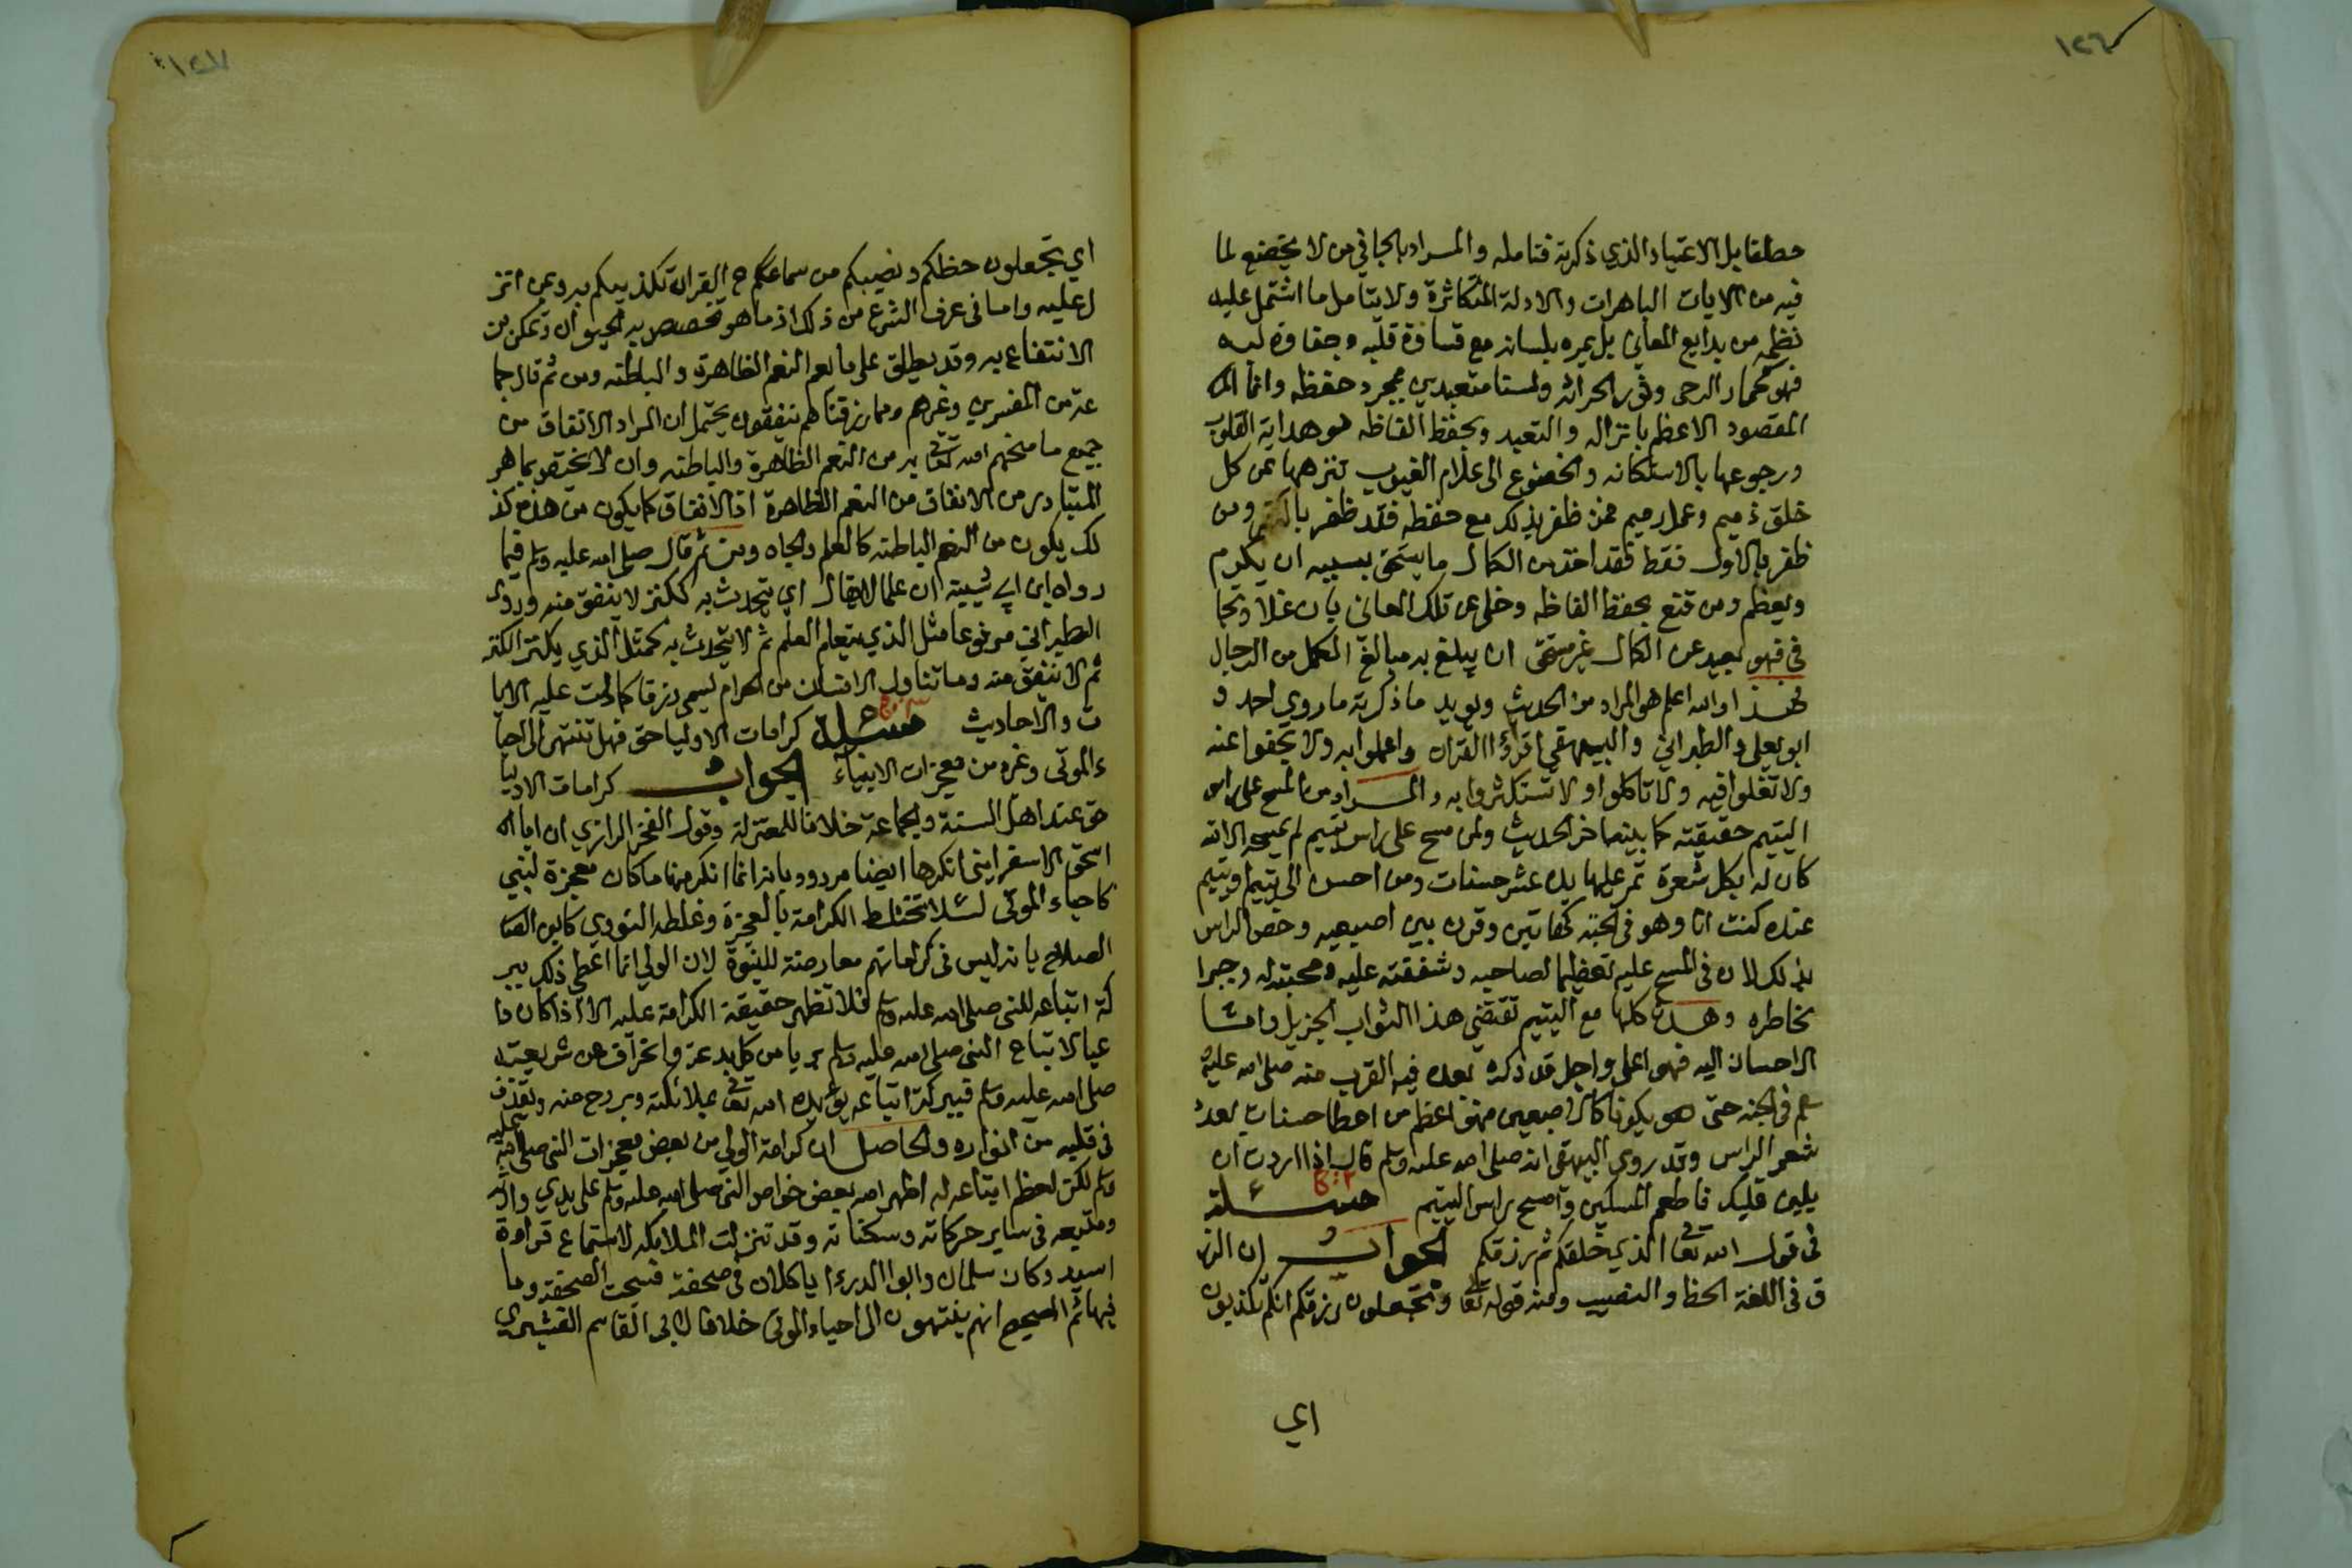 ١٢٦
مطلقا بل الاعتياد الذي ذكرته فتامله والمراد بالجافي من لا يخضع لما
فيه من الايات الباهرات والادلة المتكاثرة ولا يتامل ما اشتمل عليه
نظمه من بدايع المعاني بل يمره بلسانه مع قساوة قلبه وجفاوة لبه
فهو كحمار الرحى وثور الحراثه ولسنا متعبدين بمجرد حفظه وانما
المقصود الاعظم بانزاله والتعبد وبحفظ الفاظه هو هداية القلوب
ورجوعها بالاستكانه والخضوع الى علام الغيوب تنزهها عن كل
خلق ذميم وعمل رميم فمن ظفر بذلك مع حفظه فقد ظفر ومن
ظفر بالاول فقط فقد اخذ من الكمال ما يستحق بسببه ان يكرم
ويعظم ومن قنع بحفظ الفاظه وخلى عن تلك المعاني بان غلا وتجا
فى فهو بعيد عن الكمال غير مستحق ان يبلغ به مبالغ الكمل من الرجال
فهذا والله اعلم هو المراد من الحديث ويويد ما ذكرته ما روي احمد و
ابو يعلى والطبراني والبيهقي اقرؤا القران واعملوا به ولا تجفوا عنه
ولا تغلوا فيه ولا تاكلوا ولا تستكثروا به والمراد من المسح على راس
اليتيم حقيقته كما بينها خبر الحديث ولمن مسح على راس يتيم لم يمسحه الا لله
كان له بكل شعرة تمر عليها يده عشر حسنات ومن احسن الى يتيم او يتيم
عنده كنت انا وهو في الجنة كهاتين وقرن بين اصبعيه وخص الراس
بذلك لان فى المسح عليه تعظيما لصاحبه وشفقته عليه ومحبته له وجبرا
بخاطره وهذه كلها مع اليتيم تقتضي هذا الثواب الجزيل واما
الاحسان اليه فهو اعلى واجل قد ذكره بعده فيه القرب منه صلى الله عليه و
سلم فى الجنة حتى هو يكونا كالاصبعين فهو اعظم من اعطا حسنات بعدد
شعر الراس وقد روي البيهقى انه صلى الله عليه وسلم قال اذا اردت ان
يلين قلبك فاطعم المسكين وامسح براس اليتيم مسئلة
فى قول الله تعالى الذي خلقكم ثم رزقكم الجواب ان الرز
ق فى اللغة الحظ والنصيب ومنه قوله تعالى وتجعلون رزقكم انكم تكذبون
اي
١٢٧
اي تجعلون حظكم ونصيبكم من سماعكم القران تكذيبكم به وبمن انز
ل عليه واما فى عرف الشرع من ذلك اذ ما هو تخصص به الحيوان وتمكن من
الانتفاع به وقد يطلق على ما يعم النعم الظاهرة والباطنه ومن ثم قال جما
عة من المفسرين وغيرهم ومما رزقناهم ينفقون يحتمل ان المراد الانفاق من
جميع ما منحهم الله تعالى به من النعم الظاهرة والباطنه وان لا يختص بما هو
المتبادر من الانفاق من النعم الظاهرة اذ الانفاق كما يكون من هذه كذ
لك يكون من النعم الباطنه كالعلم والجاه ومن ثم قال صلى الله عليه وسلم فيما
رواه ابن ابي شيبة ان علما لا يقال اي يتحدث به ككنز لا ينفق منه وروى
الطبراني مرفوعا مثل الذي يتعلم العلم ثم لا يتحدث به كمثل الذي يكنز الكنز
ثم لا ينفق منه وما تناوله الانسان من الحرام يسمى رزقا كما دلت عليه الايا
ت والاحاديث مسئلة كرامات الاوليا حق فهل تنتهي الى احيا
ء الموتى وغيره من معجزات الانبياء الجواب كرامات الاوليا
حق عند اهل السنة والجماعة خلافا للمعتزلة وقول الفخر الرازي ان ابا
اسحق الاسفرايني انكرها ايضا مردود بانه انما انكر منها ما كان معجزة لنبي
كاحياء الموتى لئلا تختلط الكرامة بالمعجزة وغلطه النووي كابن الصا
الصلاح بانه ليس فى كراماتهم معارضة للنبوة لان الولي انما اعطى ذلك ببر
كة اتباعه للنبي صلى الله عليه وسلم فلا تظهر حقيقة الكرامة عليه الا اذا كان دا
عيا لاتباع النبى صلى الله عليه وسلم بريا من كل بدعة وانحراف عن شريعته
صلى الله عليه وسلم فببركة اتباعه يؤيده الله تعالى بملائكته وبروح منه ويقذف
فى قلبه من انواره والحاصل ان كرامة الولي من بعض معجزات النبى صلى الله عليه
وسلم لكن لعظم اتباعه له اظهر الله بعض خواص النبى صلى الله عليه وسلم على يدي وارثه
ومتبعه فى ساير حركاته وسكناته وقد تنزلت الملائكه لاستماع قراءة
اسيد وكان سلمان وابوا الدرداء ياكلان فى صحفة فسبحت الصحفة وما
فيها ثم الصحيح انهم ينتهون الى احياء الموتى خلافا لابى القاسم القشيري